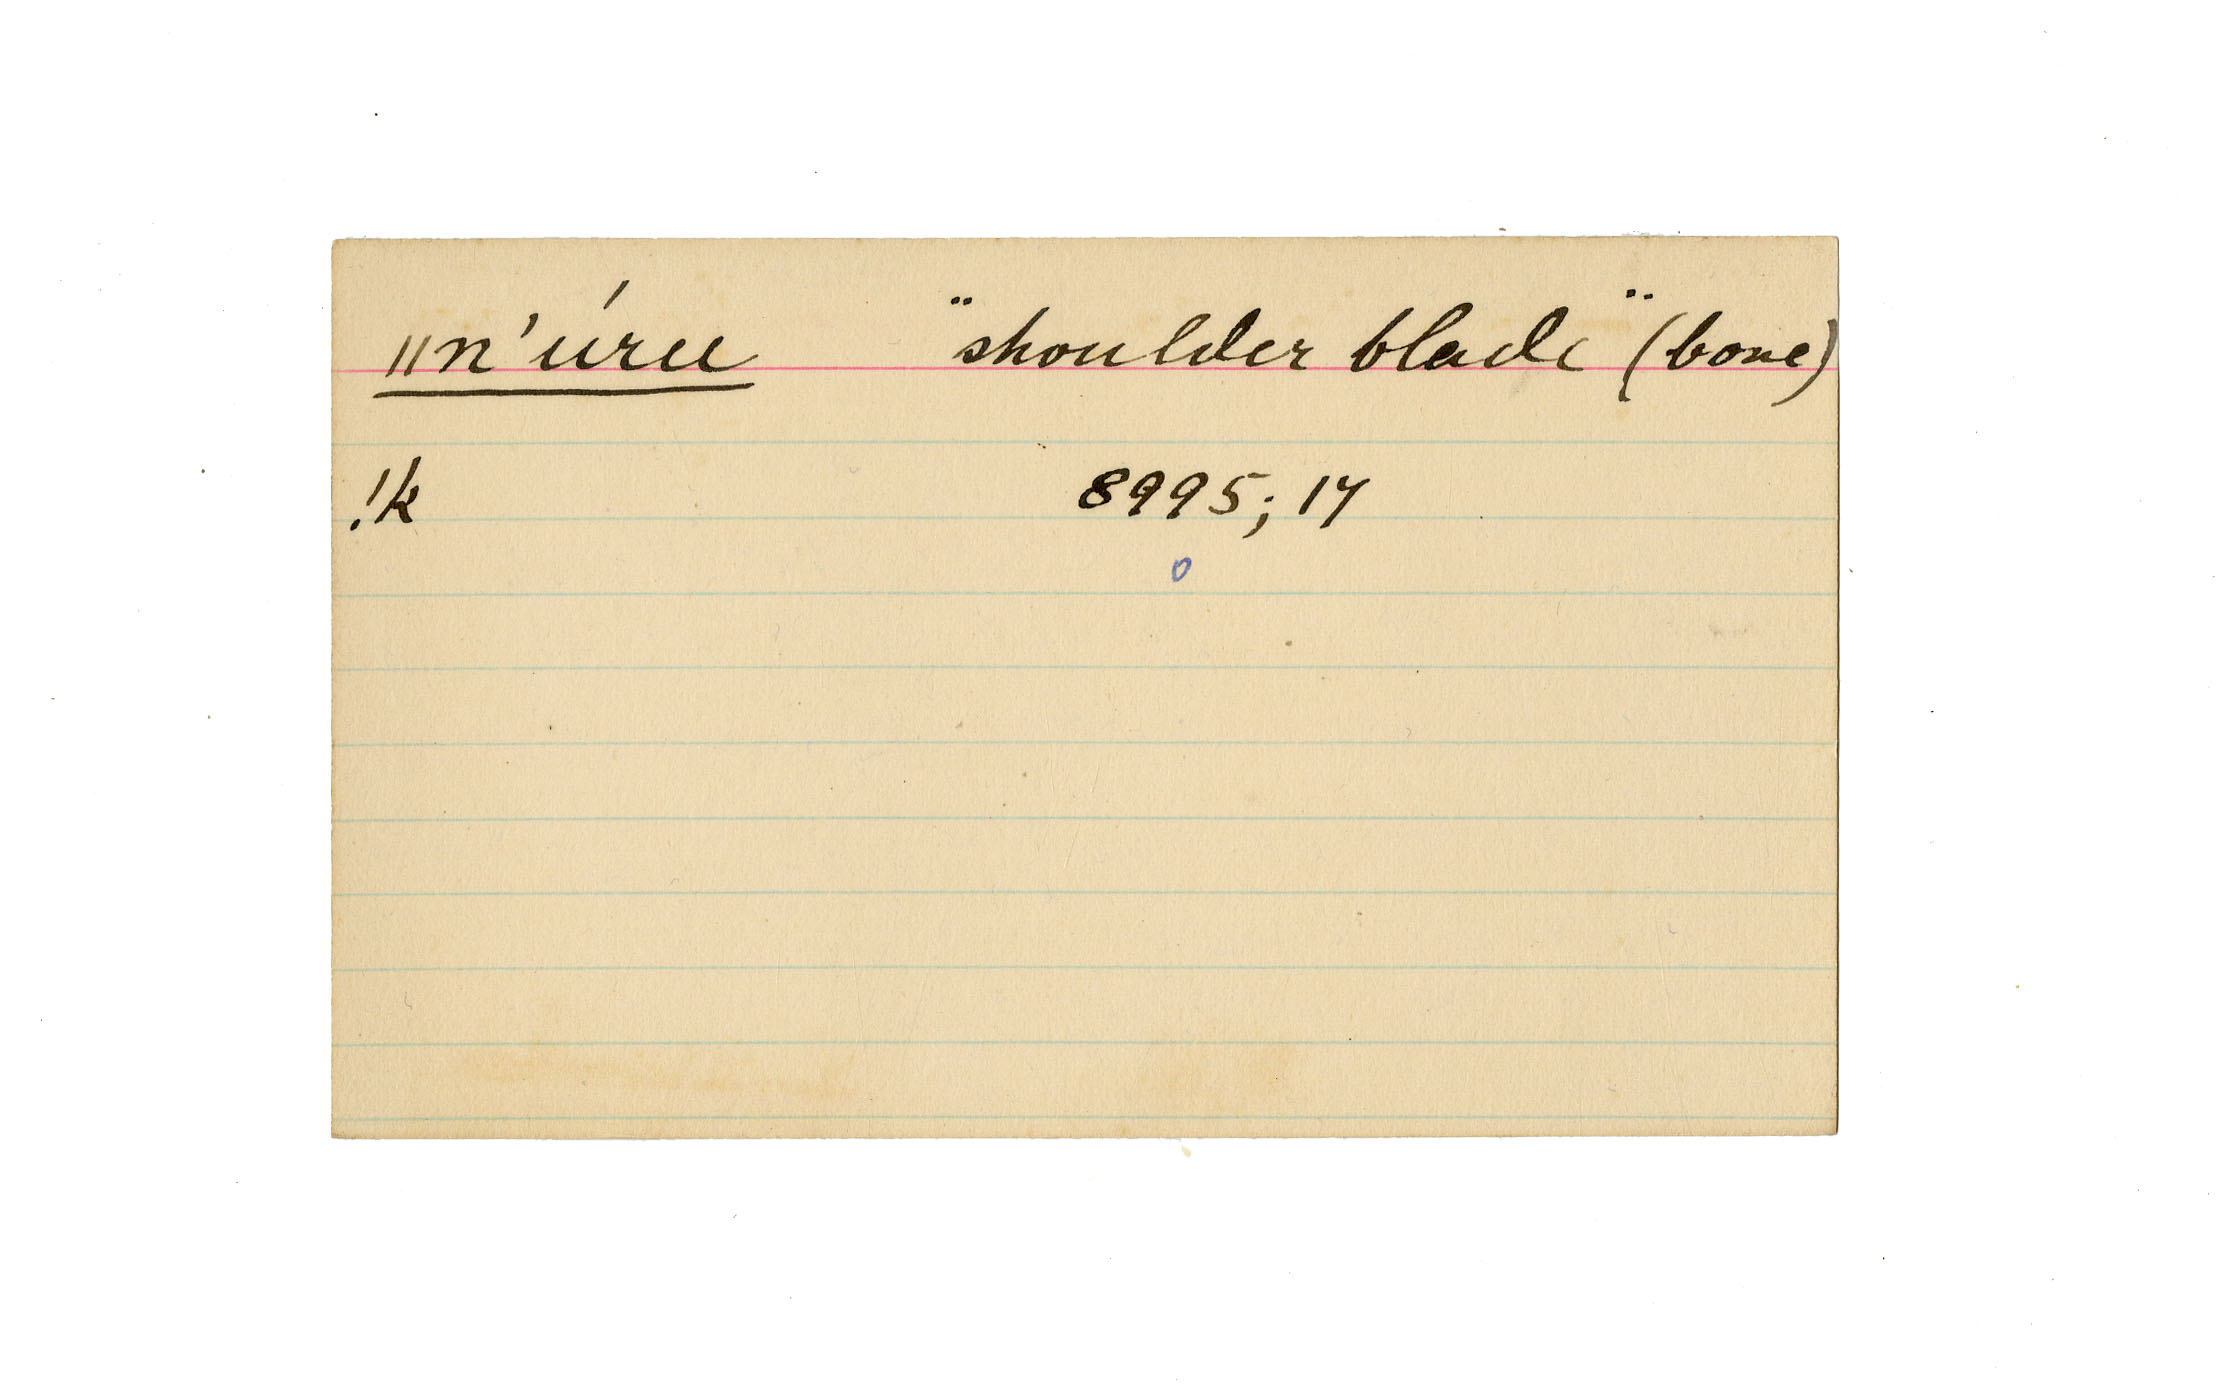 ǁn'úru "shoulder blade" (bone)
!k 8995; 17
o